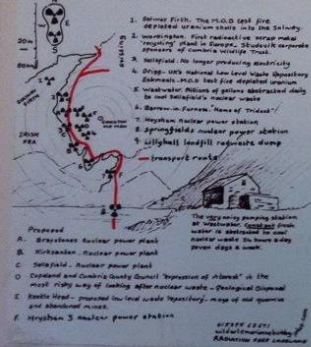 N
E
S
20m
80m
existing
1. Solway Firth. The M.O.D test fire
depleted uranium shells into the Solway.
2. Workington. First radioactive scrap metal
'recycling' plant in Europe. Studsvik corporate
sponsors of Cumbria Wildlife Trust.
3. Sellafield. No longer producing electricity
4. Drigg. UK's National Low Level Waste Repository
Eskmeals. M.O.D test fire depleted uranium
5. Wastwater. Millions of gallons abstracted daily
to cool Sellafield's nuclear waste
6. Barrow.in.Furness. 'Home of Trident'
7. Heysham nuclear power station
8. Springfields nuclear power station
9. Lillyhall landfill radwaste dump
transport route
IRISH
SEA
The very noisy pumping station
at Wastwater. Constant fresh
water is abstracted to cool
nuclear waste 24 hours a day
seven days a week.
Proposed
A. Braystones Nuclear power plant
B. Kirksanton. Nuclear power plant
C. Sellafield. Nuclear power plant
D Copeland and Cumbria County Council "expression of interest" in the
most risky way of looking after nuclear waste - Geological Disposal
E Keekle Head - proposed low level waste repository.
and abandoned mines.
F Heysham 3 nuclear power station
RADIATION FREE LAKELAND